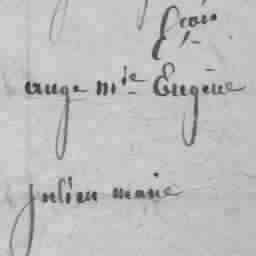 frois
ange mie Eugène
julien marie